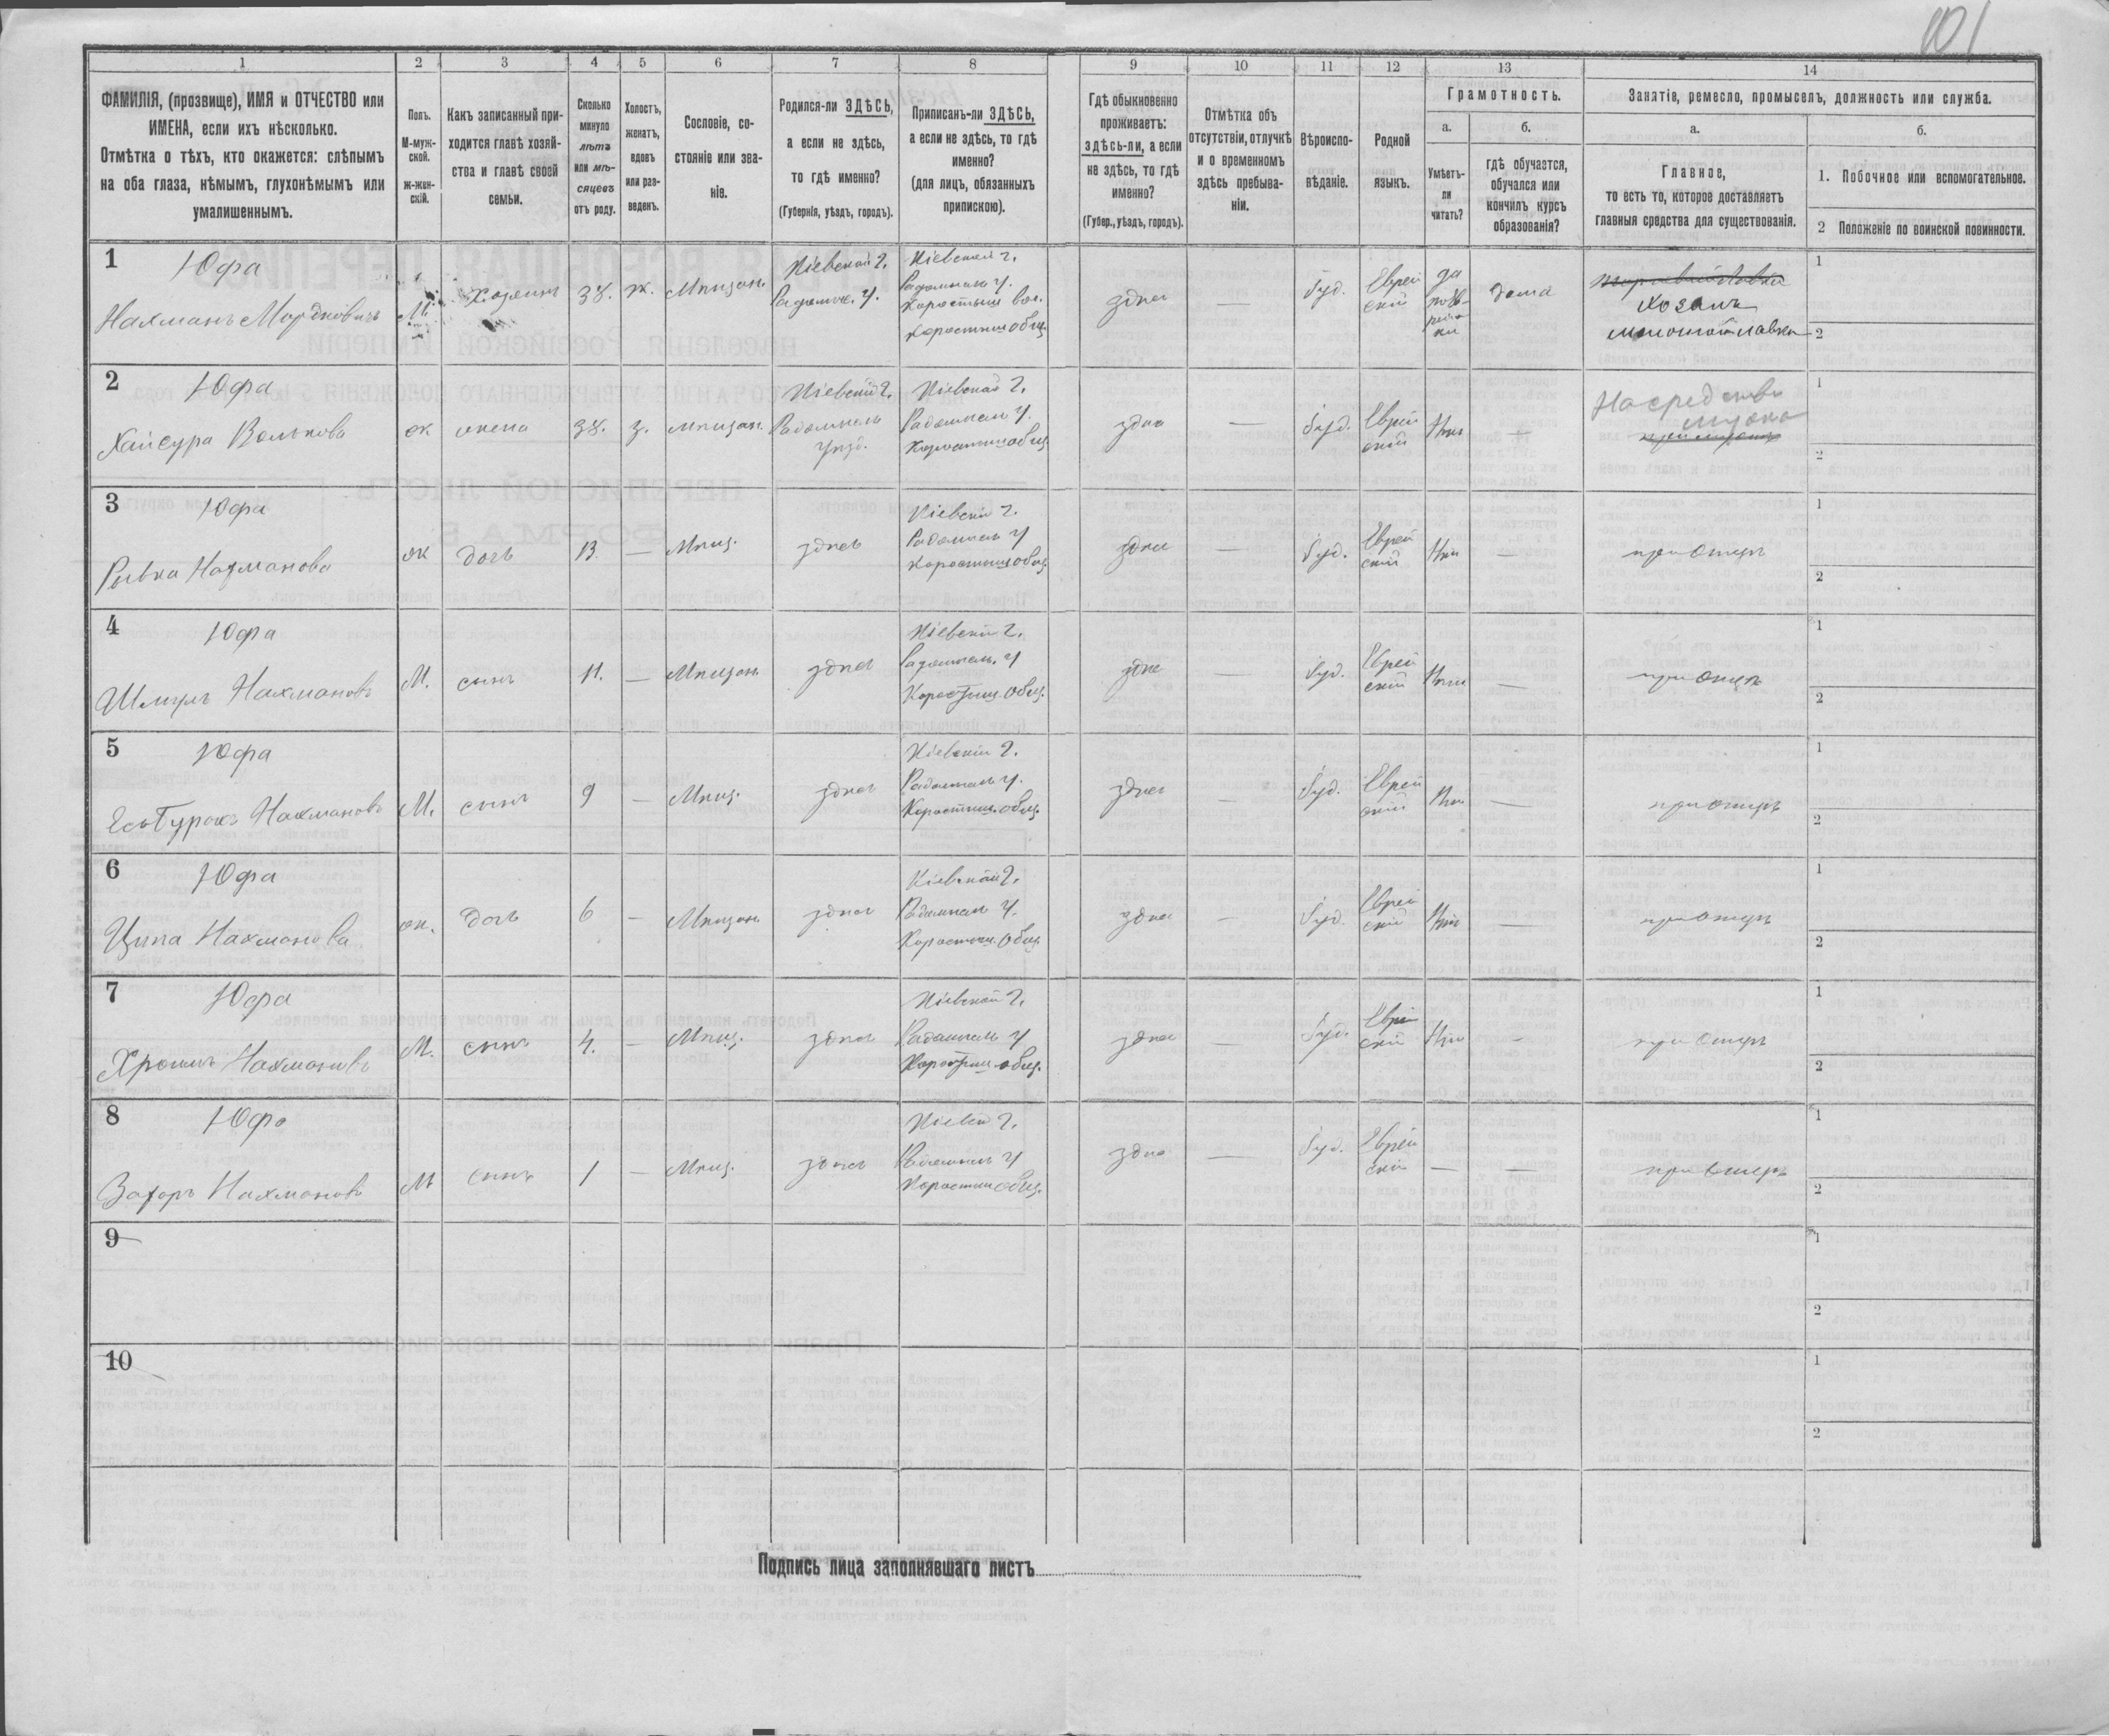 101
1
2
3
4
5
6
7
8
9
10
11
12
13
14
ФАМИЛІЯ, (прозвище), ИМЯ и ОТЧЕСТВО или
ИМЕНА, если ихъ нѣсколько.
Отмѣтка о тѣхъ, кто окажется: слѣпымъ
на оба глаза, нѣмымъ, глухонѣмымъ или
умалишеннымъ.
Полъ.
М-муж-
ской.
Ж-жен-
скій.
Какъ записанный при-
ходится главѣ хозяй-
ства и главѣ своей
семьи.
Сколько
минуло
лѣтъ
или мѣ-
сяцевъ
отъ роду.
Холостъ,
женатъ,
вдовъ
или раз-
веденъ.
Сословіе, со-
стояніе или зва-
ніе.
Родился-ли ЗДѢСЬ,
а если не здѣсь,
то гдѣ именно?
(Губернія, уѣздъ, городъ).
Приписанъ-ли ЗДѢСЬ,
а если не здѣсь, то гдѣ
именно?
(для лицъ, обязанныхъ
припискою).
Гдѣ обыкновенно
проживаетъ:
здѣсь-ли, а если
не здѣсь, то гдѣ
именно?
(Губер., уѣздъ, городъ).
Отмѣтка объ
отсутствіи, отлучкѣ
и о временномъ
здѣсь пребыва-
ніи.
Вѣроиспо-
вѣданіе.
Родной
языкъ.
Грамотность.
а.
Умѣетъ-
ли
читать?
б.
гдѣ обучается,
обучался или
кончилъ курсъ
образованія?
Занятіе, ремесло, промыселъ, должность или служба.
а.
Главное,
то есть то, которое доставляетъ
главныя средства для существованія.
б.
1. Побочное или вспомогательное.
2 Положеніе по воинской повинности.
1
Юфа
Нахманъ Мордковичъ
М.
Хозяинъ
38.
ж.
Мѣщан.
Кіевской г.
Радомыс. у.
Кіевской г.
Радомысл у.
Коростыш вол.
Коростыш общ
здѣсь
—
Іуд.
Еврей
скій
да
дома
Хозяинъ
1
2
2
Юфа
Хайсура Волькова
ж
жена
38.
з.
Мѣщан.
Кіевской г.
Радомысль
уѣзд.
Кіевской г.
Радомысл у.
Коростыш общ
здѣсь
—
Іуд.
Еврей
скій
Нѣт
—
На средства
мужа
при мужѣ
1
2
3
Юфа
Рывка Нахманова
ж
дочь
13.
—
Мѣщ.
здѣсь
Кіевской г.
Радомысл у
Коростыш общ
здѣсь
—
Іуд.
Еврей
скій
Нѣт
—
при отцѣ
1
2
4
Юфа
Шмулъ Нахмановъ
М.
сынъ
11.
—
Мѣщан.
здѣсь
Кіевской г.
Радомысл. у
Коростыш. общ.
здѣсь
—
Іуд.
Еврей
скій
Нѣт
—
при отцѣ
1
2
5
Юфа
Нахмановъ
М.
сынъ
9
—
Мѣщ.
здѣсь
Кіевской г.
Радомысл у.
Коростыш. общ.
здѣсь
—
Іуд.
Еврей
скій
Нѣт
—
при отцѣ
1
2
6
Юфа
Ципа Нахманова
ж.
дочь
6
—
Мѣщан.
здѣсь
Кіевской г.
Радомысл у.
Коростыш. общ.
здѣсь
—
Іуд.
Еврей
скій
Нѣт
—
при отцѣ
1
2
7
Юфа
Нахмановъ
М.
сынъ
4.
—
Мѣщ.
здѣсь
Кіевской г.
Радомысль у
Коростыш общ.
здѣсь
—
Іуд.
Еврей
скій
Нѣт
—
при отцѣ
1
2
8
Юфа
Захаръ Нахмановъ
М
сынъ
1
—
Мѣщ.
здѣсь
Кіевск г.
Радомысль у
Коростыш общ.
здѣсь
—
Іуд.
Еврей
скій
—
—
при отцѣ
1
2
9
1
2
10
1
2
Подпись лица заполнявшаго листъ